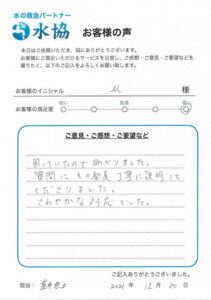 水の救急パートナー
水協
お客様の声
本日はご依頼いただき、誠にありがとうございます。
お客様にご満足いただけるサービスを目指し、ご感想・ご意見・ご要望などを
賜りたく、以下のご記入をよろしくお願い致します。
お客様のイニシャル M 様
お客様の満足度
悪い 普通 良い
ご意見・ご感想・ご要望など
困っていたので助かりました。
質問にその都度丁寧に説明して
くださりました。
さわやかな対応でした。
ご記入ありがとうございました。
担当: 2021年12月20日